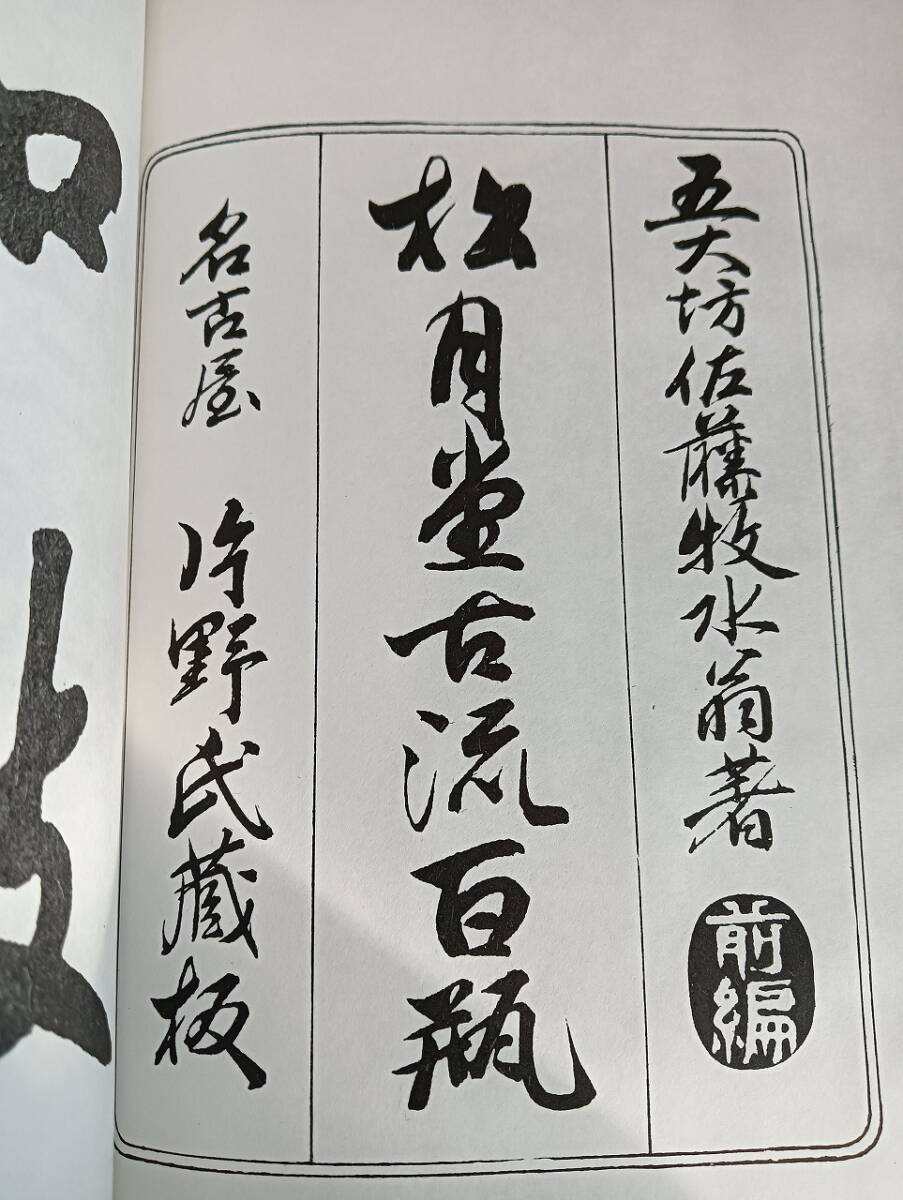 五大坊佐藤牧水翁著
前編
松月堂古流百瓶
名古屋 片野氏蔵板